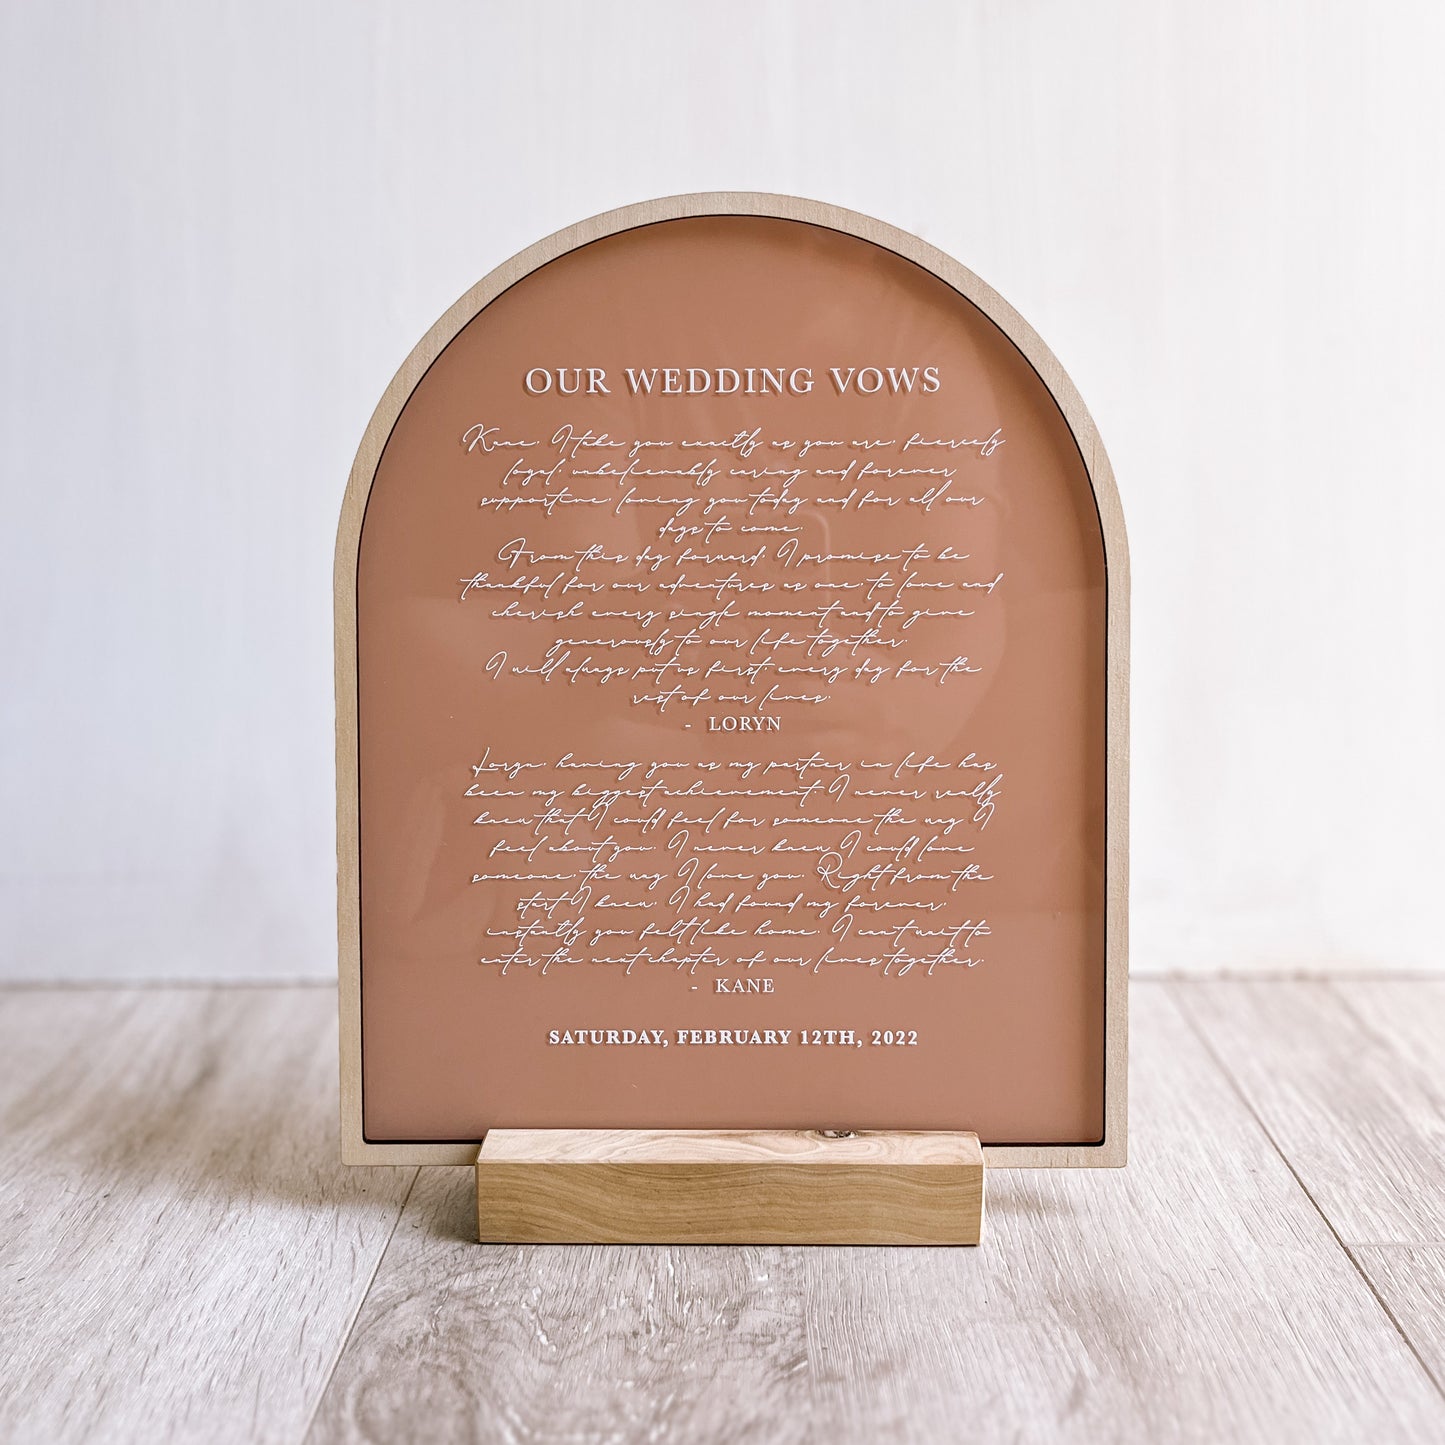 OUR WEDDING VOWS
Kane, I take you exactly as you are, fiercely
loyal, unbelievably caring and forever
supportive, loving you today and for all our
days to come.
From this day forward, I promise to be
thankful for our adventures as one, to love and
cherish every single moment and to give
generously to our life together.
I will always put us first, every day for the
rest of our lives.
- LORYN
Loryn, having you as my partner in life has
been my biggest achievement. I never really
knew that I could feel for someone the way I
feel about you. I never knew I could love
someone, the way I love you. Right from the
start I knew, I had found my forever,
instantly you felt like home. I can't wait to
enter the next chapter of our lives together.
- KANE
SATURDAY, FEBRUARY 12TH, 2022